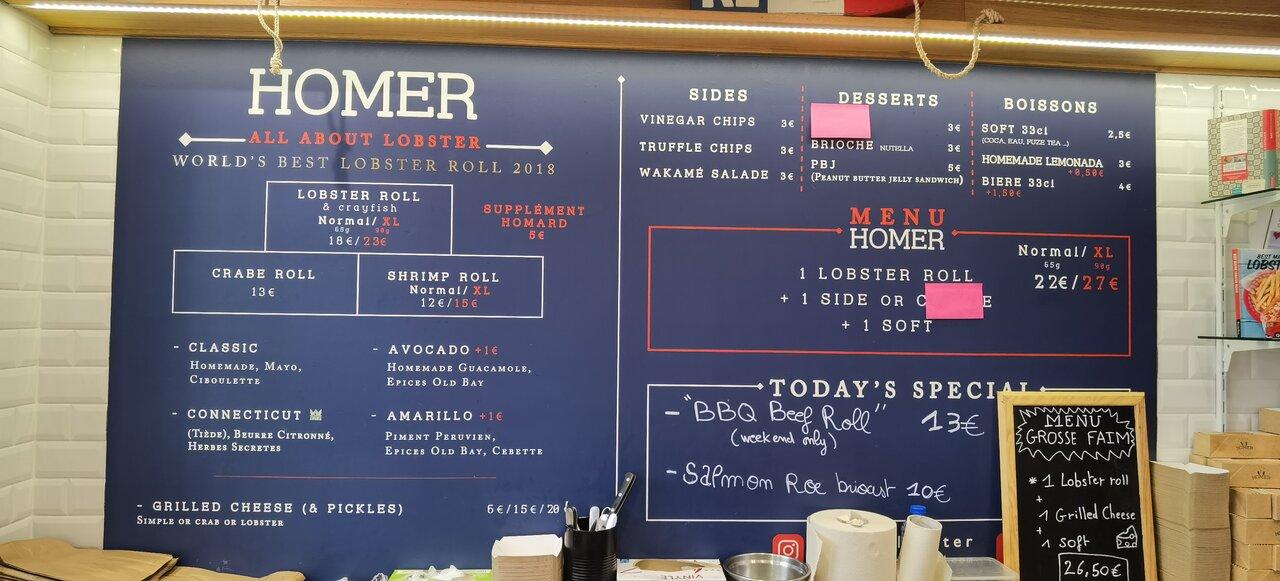 HOMER
ALL ABOUT LOBSTER
WORLD'S BEST LOBSTER ROLL 2018
LOBSTER ROLL
& crayfish
Normal/ XL
65g 90g
18€/23€
SUPPLÉMENT
HOMARD
5€
CRABE ROLL
13€
SHRIMP ROLL
Normal/ XL
12€/15€
- CLASSIC
HOMEMADE, MAYO,
CIBOULETTE
- AVOCADO +1€
HOMEMADE GUACAMOLE,
EPICES OLD BAY
- CONNECTICUT
(TIÈDE), BEURRE CITRONNÉ,
HERBES SECRETES
- AMARILLO +1€
PIMENT PERUVIEN,
EPICES OLD BAY, CEBETTE
- GRILLED CHEESE (& PICKLES) 6€/15€/20
SIMPLE OR CRAB OR LOBSTER
SIDES
VINEGAR CHIPS 3€
TRUFFLE CHIPS 3€
WAKAMÉ SALADE 3€
DESSERTS
3€
BRIOCHE NUTELLA 3€
PBJ 5€
(PEANUT BUTTER JELLY SANDWICH)
BOISSONS
SOFT 33cl 2,5€
(COCA, EAU, FUZE TEA ..)
HOMEMADE LEMONADA 3€
+0,50€
BIERE 33cl 4€
+1,50€
MENU
HOMER
Normal/ XL
65g 90g
22€/27€
1 LOBSTER ROLL
+ 1 SIDE OR C E
+ 1 SOFT
TODAY'S SPECIAL
- "BBQ Beef Roll" 13€
(weekend only)
- Salmon Roe 10€
MENU
GROSSE FAIM
* 1 Lobster roll
+
1 Grilled Cheese
+
1 Soft
26,50€
VINYLE